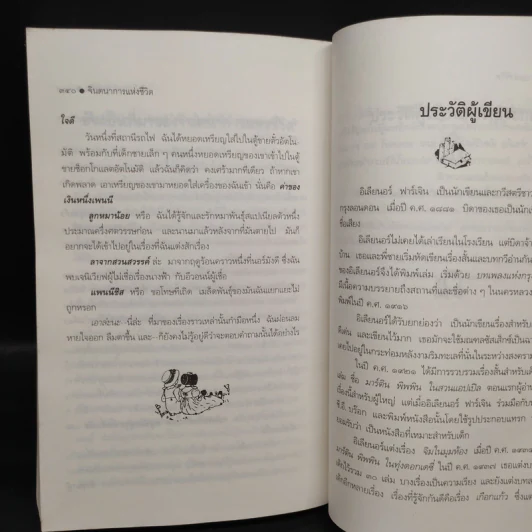 ๓๔๐ ● จินตนาการแห่งชีวิต
ใจดี
วันหนึ่งที่สถานีรถไฟ ฉันได้หยอดเหรียญใส่ไปในตู้ขายตั๋วอัตโน-
มัติ พร้อมกับที่เด็กชายเล็ก ๆ คนหนึ่งหยอดเหรียญของเขาเข้าไปในตู้
ขายช็อกโกแลตอัตโนมัติ แล้วฉันก็คิดว่า คงเศร้ามากทีเดียว ถ้าหากเขา
เกิดพลาด เอาเหรียญของเขามาหยอดใส่เครื่องของฉันเข้า นั่นคือ ค่าของ
เงินหนึ่งเพนนี
ลูกหมาน้อย หรือ ฉันได้รู้จักและรักหมาพันธุ์สแปเนียลตัวหนึ่ง
ประมาณครึ่งศตวรรษก่อน และนานมาแล้วหลังจากที่มันตายไป มันก็
อยากจะได้เข้าไปอยู่ในเรื่องที่ฉันแต่งสักเรื่อง
ลาจากสวนสวรรค์ ล่ะ มาจากฤดูร้อนคราวหนึ่งที่นอร์มังดี ซึ่งฉัน
พบเจนีเวียฟผู้ไม่เชื่อเรื่องนางฟ้า กับอีวอนน์ผู้ที่เชื่อ
แพนนีชิส หรือ ขอโทษทีเถิด เมล็ดพันธุ์ของมันฉันแยกแยะไม่
ถูกหรอก
เอาล่ะนะ–นี่ล่ะ ที่มาของเรื่องราวเหล่านั้นกำมือหนึ่ง ฉันผ่อนลม
หายใจออก ลืมตาขึ้น และ–ก็ยังคงไม่รู้อยู่ดีว่าจะตอบคำถามนั้นได้อย่างไร
ประวัติผู้เขียน
อีเลียนอร์ ฟาร์เจิน เป็นนักเขียนและกวีสตรีชาว
กรุงลอนดอน เมื่อปี ค.ศ. ๑๘๘๑ บิดาของเธอเป็นนัก
ชื่อเสียง
อีเลียนอร์ไม่เคยได้เล่าเรียนในโรงเรียน แต่บิดาจ้า
บ้าน เธอและพี่ชายเริ่มหัดเขียนเรื่องสั้นและบทกวีอ่านกัน
ของอีเลียนอร์จึงได้พิมพ์เล่ม เริ่มด้วย บทเพลงแห่งกรุ
มีเนื้อความบรรยายถึงสถานที่และชื่อต่าง ๆ ในนครหลวง
พิมพ์ในปี ค.ศ. ๑๙๑๖
อีเลียนอร์ได้รับยกย่องว่า เป็นนักเขียนเรื่องสำหรับเด็
ดีเด่น และเขียนไว้มาก เธอมักจะใช้มณฑลซัสเส็กซ์เป็นฉา
เคยไปอยู่ในกระท่อมหลังงามริมทะเลที่นั่นในระหว่างสงคราม
ในปี ค.ศ. ๑๙๒๑ ได้มีการรวบรวมเรื่องสั้นสำหรับเด็
เล่ม ชื่อ มาร์ติน พิพพิน ในสวนแอปเปิล ตอนแรกผู้อ่าน
เรื่องนี้สำหรับผู้ใหญ่ แต่เมื่ออีเลียนอร์ ฟาร์เจิน ร่วมมือกับน
ซี.อี. บร็อก และพิมพ์หนังสือนั้นโดยใช้รูปประกอบแทรก
ยอมรับว่า เป็นหนังสือที่เหมาะสำหรับเด็ก
อีเลียนอร์แต่งเรื่อง จิมในมุมห้อง เมื่อปี ค.ศ. ๑๙๓๔
มาร์ติน พิพพิน ในทุ่งดอกเดซี่ ในปี ค.ศ. ๑๙๓๗ เธอแต่งบ
เด็กไว้รวม ๓๐ เล่ม บางเรื่องเป็นความเรียง และยังแต่งบทล
เด็กอีกหลายเรื่อง เรื่องที่รู้จักกันดีคือเรื่อง เกือกแก้ว ซึ่งแต่